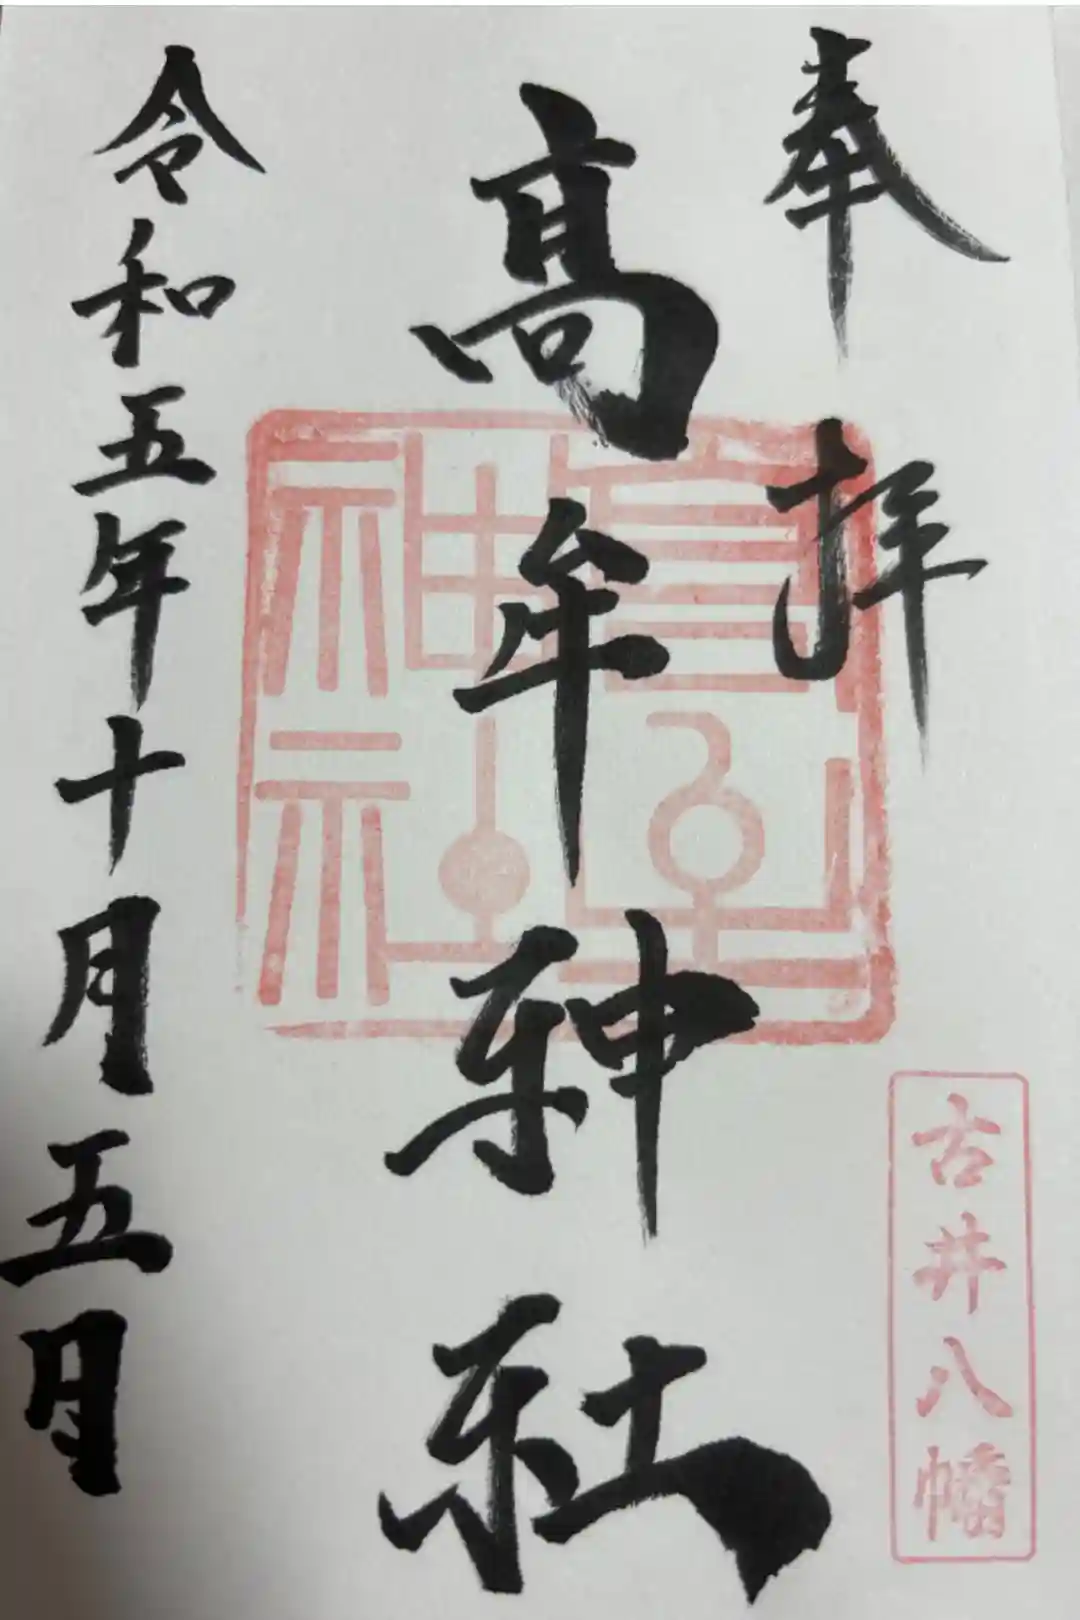 奉拝
髙牟神社
令和五年十月五日
古井八幡
髙牟神社